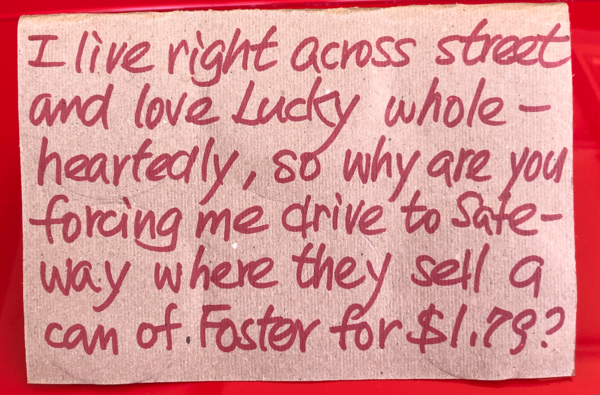 I live right across street
and love Lucky whole-
heartedly, so why are you
forcing me drive to Safe-
way where they sell a
can of Foster for $1.79?